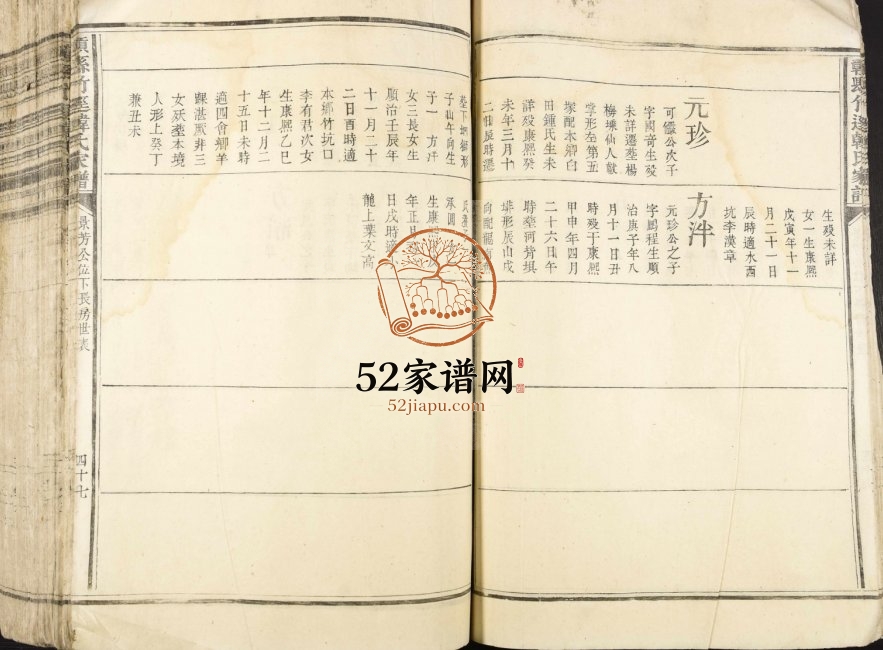 元珍
可儼公次子
字國奇生殁
未詳遷塟楊
梅壙仙人獻
掌形至第五
塚配本鄉白
田鍾氏生未
詳殁康熙癸
未年三月十
二日辰時遷
子山午向生
子一方泮
女三長女生
順治壬辰年
十一月二十
二日酉時適
本鄉竹坑口
李有君次女
生康熙乙巳
年十二月二
十五日未時
適四會鄉羊
踝湛厫非三
女殀塟本境
人形上癸丁
兼丑未
生殁未詳
女一生康熙
戊寅年十一
月二十一日
辰時適水酉
坑李漢章
方泮
元珍公之子
字周程生順
治庚子年八
月十一日丑
時殁于康熙
甲申年四月
二十六日午
時塟河背塸
塘形辰山戌
生康熙
年正月
日戌時適
龍上葉文高
竹逕韓氏家譜
景芳公位下長房世表
四十七
52家谱网
52jiapu.com